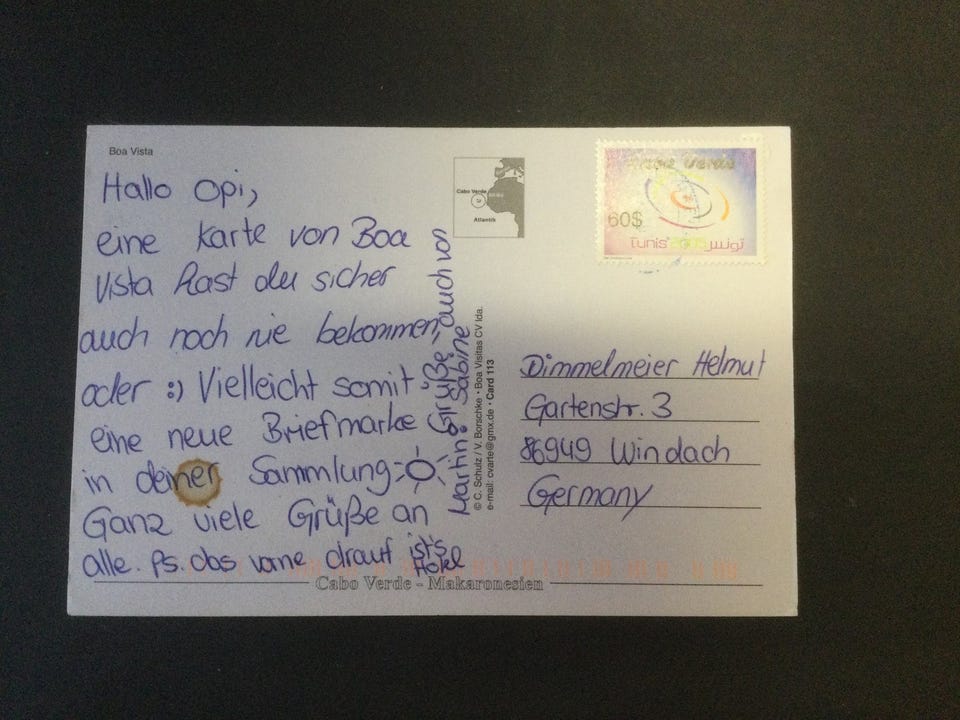 Boa Vista
Hallo Opi,
eine Karte von Boa
Vista hast du sicher
auch noch nie bekommen,
oder :) Vielleicht somit
eine neue Briefmarke
in deiner Sammlung
Ganz viele Grüße an
alle. Ps. das vorne drauf ist's
Hotel
Grüße, auch von
Martin. Sabine
Cabo Verde
Atlantik
© C. Schulz / V. Borschke • Boa Visitas CV lda.
e-mail: cvarte@gmx.de • Card 113
Cabo Verde
60$
Tunis 2005 تونس
Dimmelmeier Helmut
Gartenstr. 3
86949 Windach
Germany
Cabo Verde - Makaronesien